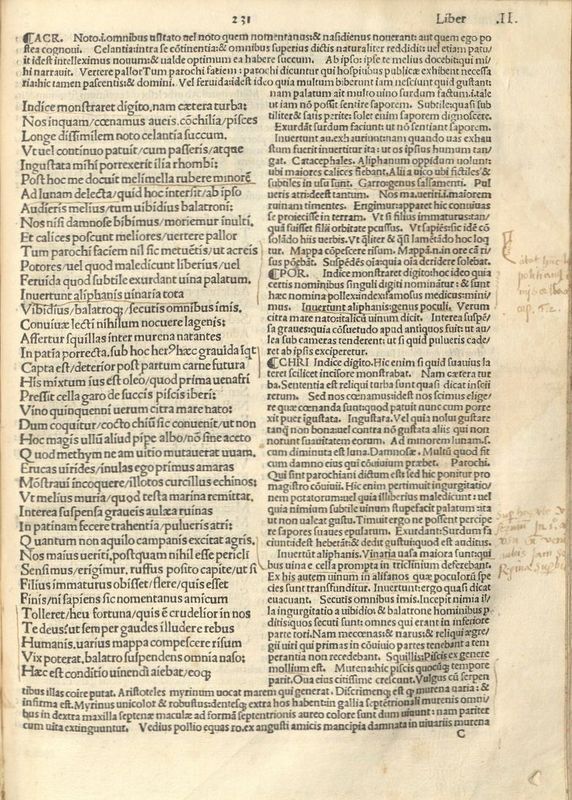 231 Liber .II.
¶ACR. Noto.i.omnibus usitato uel noto quem nomentanus:& nasidienus nouerant: aut quem ego po
stea cognoui. Celantia:intra se cõtinentia:& omnibus superius dictis naturaliter reddidit: uel etiam patu/
it idest intelleximus nouum:& ualde optimum ea habere succum. Ab ipso: ipse te melius docebit:qui mi/
hi narrauit. Vertere pallor Tum parochi faciem : parochi dicuntur qui hospitibus publicæ exhibent necessa
ria:hic tamen pascentis:& domini. Vel feruida:idest ideo quia multum biberunt iam nesciunt quid gustent:
Indice monstraret digito, nam cætera turba:
Nos inquam/cœnamus aueis.cõchilia/pisces
Longe dissimilem noto celantia succum.
Vt uel continuo patuit/cum passeris/atque
Ingustata mihi porrexerit ilia rhombi:
Post hoc me docuit melimella rubere minorẽ
Ad lunam delecta/quid hoc intersit/ab ipso
Audieris melius/tum uibidius balatroni:
Nos nisi damnose bibimus/moriemur inulti.
Et calices poscunt meliores/uertere pallor
Tum parochi faciem nil sic metuẽtis/ut acreis
Potores/uel quod maledicunt liberius/uel
Feruida quod subtile exurdant uina palatum.
Inuertunt aliphanis uinaria tota
Vibidius/balatroq;/secutis omnibus imis.
Conuiuæ lecti nihilum nocuere lagenis:
Affertur squillas inter murena natantes
In patia porrecta. sub hoc herꝰ hæc grauida iqt
Capta est/deterior post partum carne futura
His mixtum ius est oleo/quod prima uenafri
Pressit cella garo de succis piscis iberi:
Vino quinquenni uerum citra mare nato:
Dum coquitur/cocto chiũ sic conuenit/ut non
Hoc magis ullũ aliud pipe albo/nõ sine aceto
Quod methymneam uitio mutauerat uuam.
Erucas uirides/inulas ego primus amaras
Mõstraui incoquere/illotos curcillus echinos:
Vt melius muria/quod testa marina remittat.
Interea suspensa graueis aulæa ruinas
In patinam fecere trahentia/pulueris atri:
Quantum non aquilo campanis excitat agris.
Nos maius ueriti, postquam nihil esse pericli
Sensimus/erigimur. ruffus posito capite/ut si
Filius immaturus obisset/flere/quis esset
Finis/ni sapiens sic nomentanus amicum
Tolleret/heu fortuna/quis ẽ crudelior in nos
Te deus:ut semper gaudes illudere rebus
Humanis.uarius mappa compescere risum
Vix poterat, balatro suspendens omnia naso:
Hæc est conditio uiuendi aiebat/eoq;
nam palatum ait multo uino surdum factum.i.tale
ut iam nõ possit sentire saporem. Subtile:quasi sub
tiliter & satis perite: solet enim saporem dignoscere.
Exurdãt surdum faciunt: ut nõ sentiant saporem.
Inuertunt au.exhauriunt:nam quando uas exhau
stum fuerit inuertitur ita : ut os ipsius humum tan/
gat. Catacephales. Aliphanum oppidum uolunt:
ubi maiores calices fiebant. Alii a uico ubi fictiles &
subtiles in usu sunt. Garro:genus salsamenti. Pul
ueris atri:deest tantum. Nos ma.ueriti.i.maiorem
ruinam timentes. Erigimur:apparet hic conuiuas
se proiecisse in terram. Vt si filius immaturus:tan/
quã fuisset filii orbitate pcussus. Vt sapiẽs:sic idẽ cõ
solãdo hiis uerbis. Vt qliter & qsi lamẽtãdo hoc loq
tur. Mappa cõpescere risum. Mappã.n.in ore cã ri/
sus põgbãt. Suspẽdẽs oia:quia oia deridere solebat.
¶POR. Indice monstraret digito:hoc ideo quia
certis nominibus singuli digiti nominãtur : & sunt
hæc nomina pollex:index:famosus:medicus:mini/
mus. Inuertunt aliphanis:genus poculi. Verum
citra mare nato:italicũ uinum dicit. Interea suspẽ/
sa graues:quia cõsuetudo apud antiquos fuit: ut au/
lea sub cameras tenderent: ut si quid pulueris cade/
ret ab ipsis exciperetur.
¶CHRI Indice digito. Hic enim si quid suauius la
teret scilicet incisore monstrabat. Nam cætera tur
ba. Sententia est reliqui turba sunt quasi dicat inscii
rerum. Sed nos cœnamus:idest nos scimus elige/
re quæ cœnanda sunt:quod patuit nunc cum porre
xit puer igustata. Ingustata. Vel quia nolui gustare
tanq̃ non bona:uel contra nõ gustata aliis qui non
norunt suauitatem eorum. Ad minorem lunam.s.
cum diminuta est luna. Damnosæ. Multũ quod fit
cum damno eius qui cõuiuium præbet. Parochi.
Qui sint parochiani dictum est:sed hic ponitur pro
magistro cõuiuii. Hic enim pertimuit ingurgitatio/
nem potatorum:uel quia illiberius maledicunt : uel
quia nimium subtile uinum stupefacit palatum :ita
ut non ualeat gustu. Timuit ergo ne possent percipe
re sapores suaues epularum. Exurdant:Surdum fa
ciunt:idest hebetãt:& dedit gustui:quod est auditus.
Inuertũt aliphanis. Vinaria uasa maiora sunt:qui
bus uina e cella prompta in triclinium deferebant.
Ex his autem uinum in alifanos quæ poculorũ spe
cies sunt transfunditur. Inuertunt:ergo quasi dicat
euacuant. Secutis omnibus imis.Incepit nimia il/
la ingurgitatio a uibidio:& balatrone hominibus p
ditis:quos secuti sunt: omnes qui erant in inferiore
parte tori.Nam mecœnas:& narus:& reliqui ægre/
gii uiri qui primas in cõuiuio partes tenebant a tem
perantia non recedebant. Squillis:Piscis ex genere
mollium est. Murena:hic piscis quocũq; tempore
parit.Oua eius citissime crescunt.Vulgus cũ serpen
tibus illas coire putat. Aristoteles myrinum uocat marem qui generat. Discrimenq; est q murena uaria : &
infirma est.Myrinus unicolor & robustus:dentesq; extra hos habent:in gallia septẽtrionali murenis omni/
bus in dextra maxilla septenæ maculæ ad formã septentrionis aureo colore sunt dum uiuunt: nam pariter
cum uita extinguuntur. Vedius pollio eques ro.ex angusti amicis mancipia damnata in uiuariis murena
C